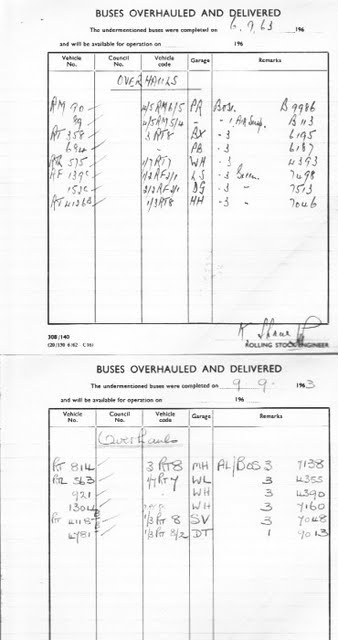 BUSES OVERHAULED AND DELIVERED
The undermentioned buses were completed on 6.9.63 196
and will be available for operation on 196
Vehicle No. Council No. Vehicle code Garage Remarks
OVERHAULS
RM 90 4/5RM5/5 PR Bosa. B9986
89 4/5RM5/4 - B113
RT 358 3RT8 BX - 3 6195
PB - 3 6187
575 1/7RT7 WH - 3 4393
RF 139 1/2RF2/1 LS - 3 7498
152 2/2RF2/1 DG - 3 " 7513
RT 4126 1/3RT8 HH - 3 " 7046
308/140
ROLLING STOCK ENGINEER
BUSES OVERHAULED AND DELIVERED
The undermentioned buses were completed on 9 9. 1963
and will be available for operation on 196
Vehicle No. Council No. Vehicle code Garage Remarks
Overhauls
RT 814 3 RT8 MH AL/BOS 3 7138
563 1/7 RT 7 WL 3 4355
921 " WH 3 4390
1304 WH 3 7160
RT 4118 1/3 RT 8 SV 3 7048
4781 1/3 RT 8/2 DT 1 9013